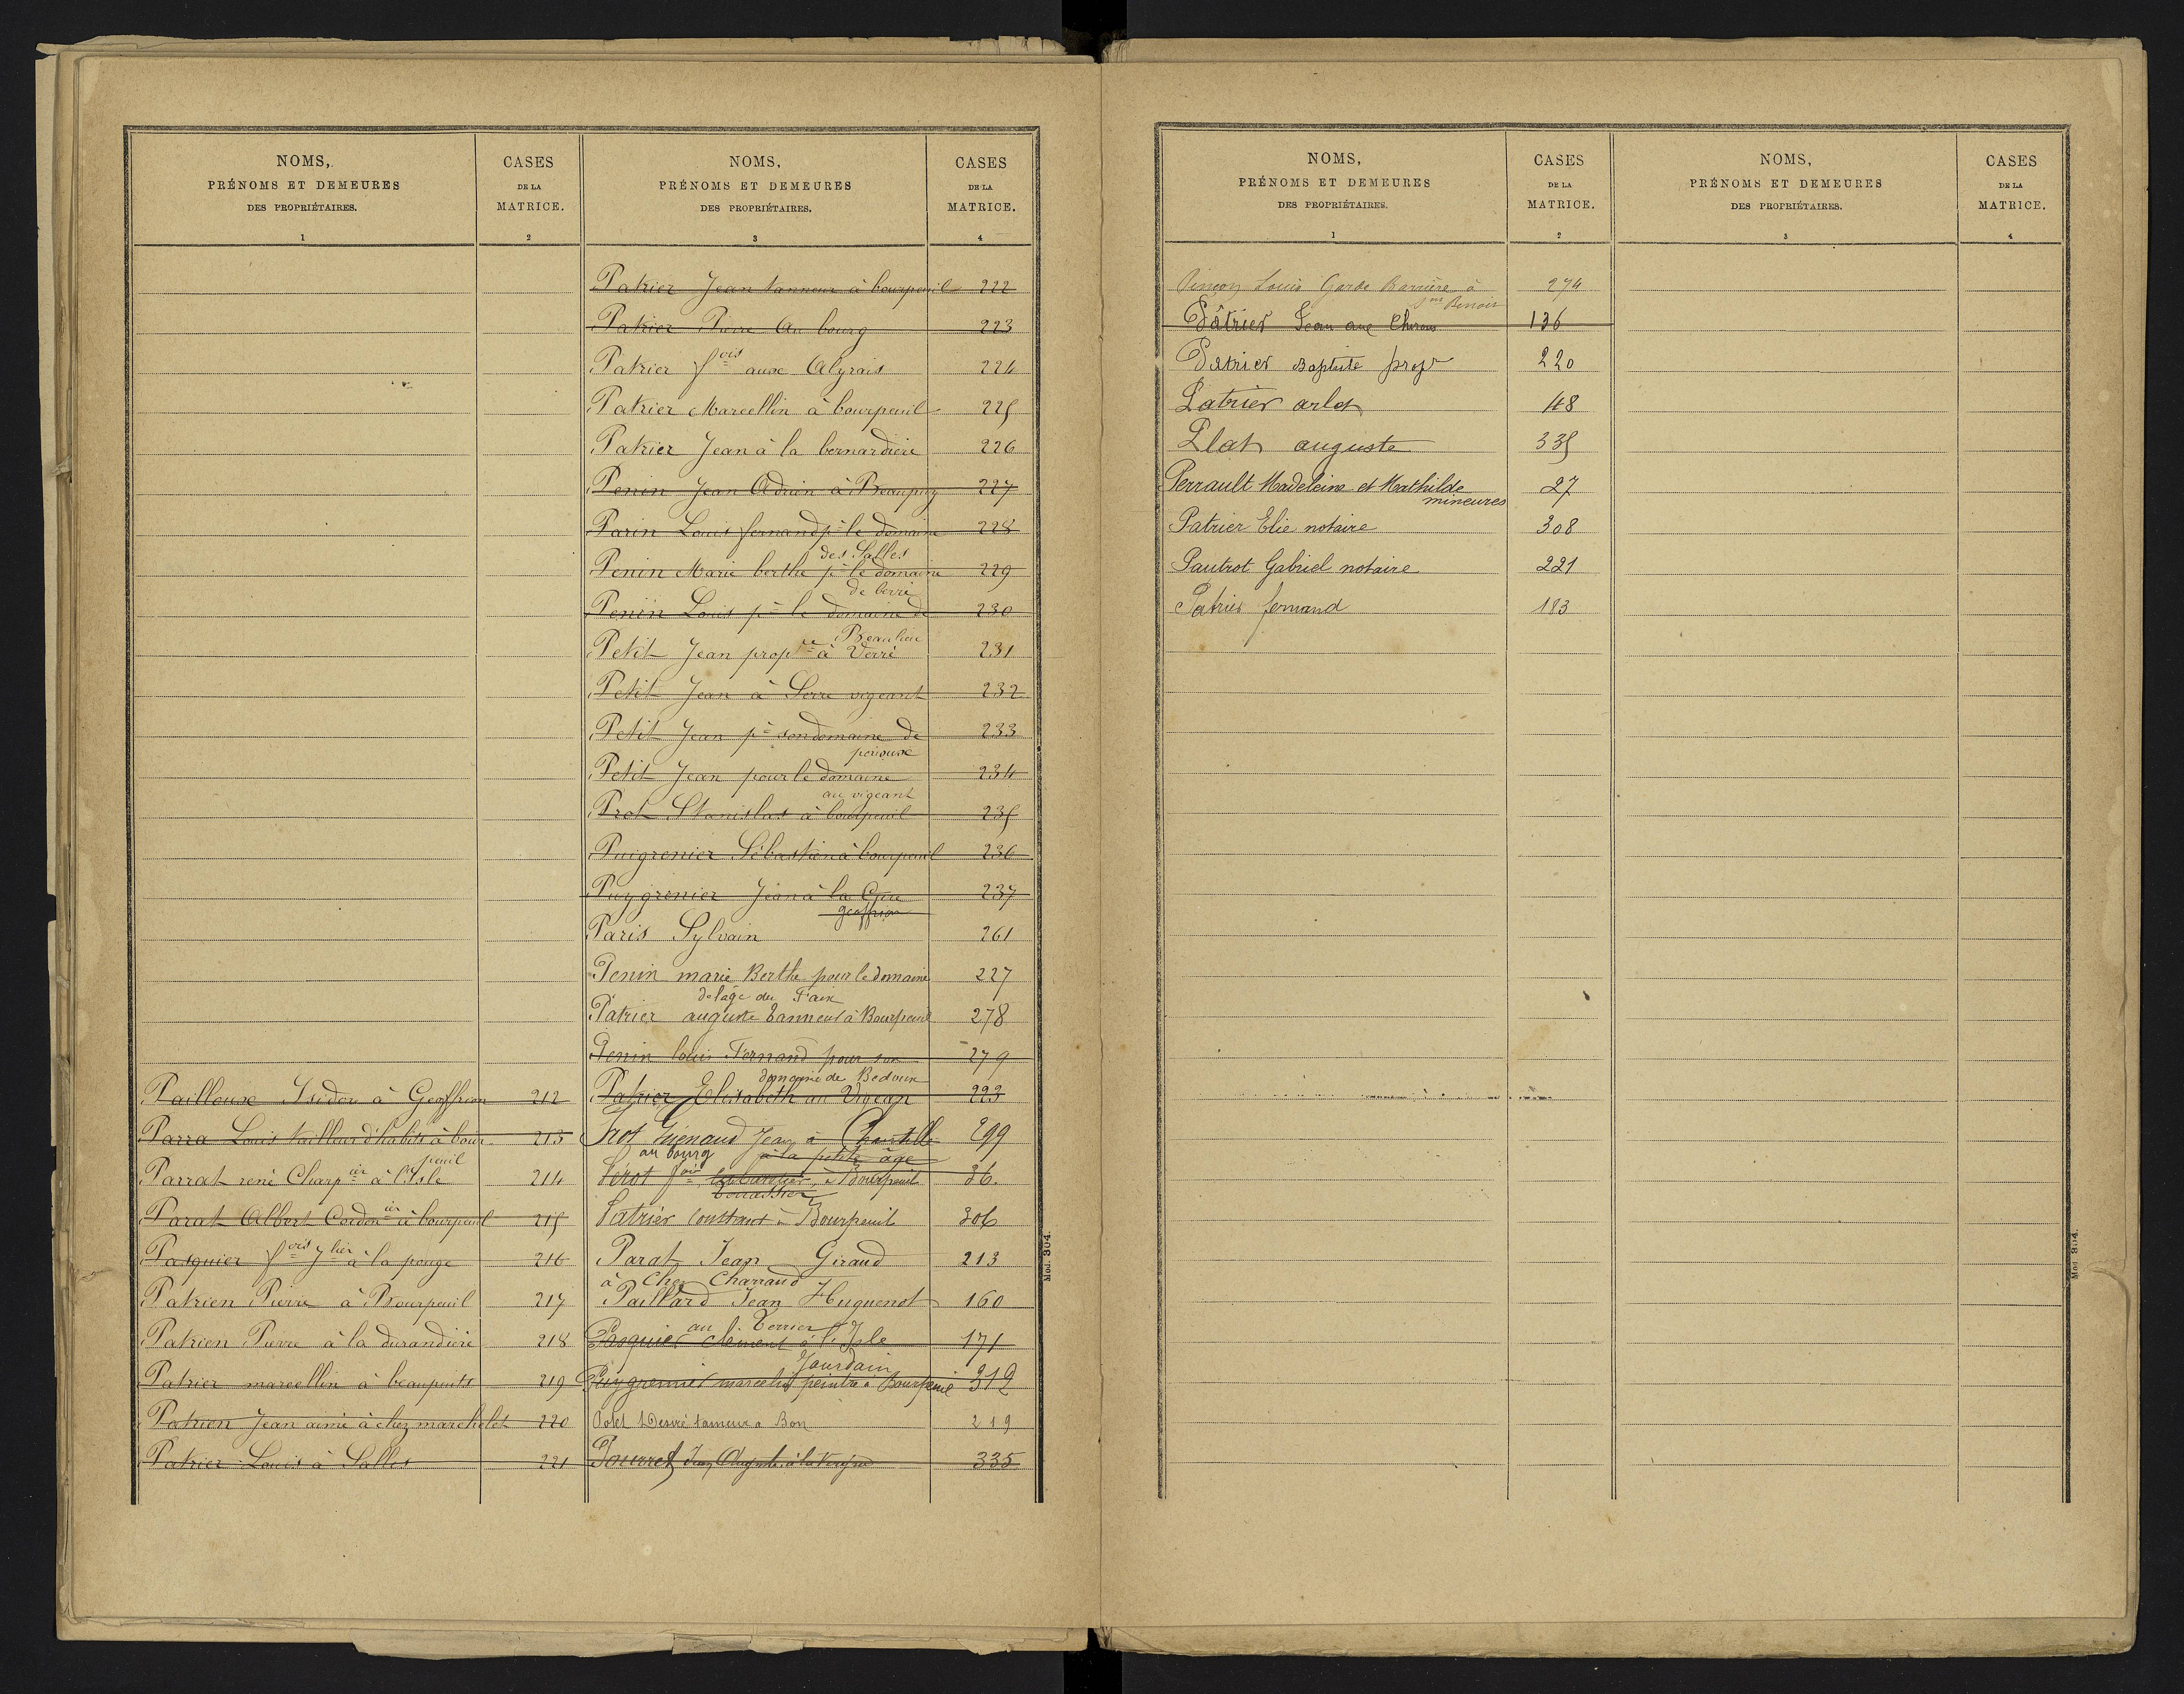 NOMS,
PRÉNOMS ET DEMEURES
DES PROPRIÉTAIRES.
1
CASES
DE LA
MATRICE.
2
Pailloux Isidor à Geoffrion 212
Parra Louis tailleur d'habits à bour-
peuil 213
Parrat rené Charp ier à l'Isle 214
Parat Albert Cordon ier à bourpeuil 215
Pasquier f ois à la ponge 216
Patrien Pierre à Bourpeuil 217
Patrien Pierre à la durandière 218
Patrier marcellin à beaupuits 219
Patrien Jean aimé à chez marchelet 220
Patrier Louis à Salles 221
NOMS,
PRÉNOMS ET DEMEURES
DES PROPRIÉTAIRES.
3
CASES
DE LA
MATRICE.
4
Patrier Jean tanneur à bourpeuil 222
Patrier Pierre Au bourg 223
Patrier f ois aux Alyrais 224
Patrier Marcellin à bourpeuil 225
Patrier Jean à la bernardière 226
Penin Jean Adrien à Beaupuy 227
Parin Louis fernand p r le domaine 228
des Salles
Penin Marie berthe p r le domaine 229
de berri
Penin Louis p r le domaine de 230
Beaulieu
Petit Jean prop re à Verré 231
Petit Jean à Serre vigeant 232
Petit Jean p r son domaine de 233
périoux
Petit Jean pour le domaine 234
au vigeant
Prot Stanislas à bourpeuil 235
Puigrenier Sébastien à bourpeuil 236
Puygrenier Jean à la 237
geoffrion
Paris Sylvain 261
Penin marie Berthe pour le domaine 227
de l'âge du Faix
Patrier auguste tanneur à Bourpeuil 278
Penin louis Fernand pour son 279
domaine de Bedoux
Patrier Elisabeth au Vigean 223
Prot Jean à 299
au bourg à la petite âge
Perot f ois à Bourpeuil 36.
Patrier Constant à Bourpeuil 306
Parat Jean Giraud 213
à Chez Charraud
Paillard Jean Huguenot 160
au Terrier
Pasquier clément à l'Isle 171
Jourdain
Puygrenier marcelin peintre à Bourpeuil 312
Desiré tanneur a Bon 219
Pourret Jean Auguste à la 335
Mod. 304.
NOMS,
PRÉNOMS ET DEMEURES
DES PROPRIÉTAIRES.
1
CASES
DE LA
MATRICE.
2
Pinçon Louis Garde Barrière à 274
Benoit
Patrier Jean aux 136
Patrier Baptiste prop r 220
Patrier arlot 48
Plat auguste 335
Perrault Madeleine et Mathilde 27
mineures
Patrier Elie notaire 308
Pautrot Gabriel notaire 221
Patrier fernand 183
NOMS,
PRÉNOMS ET DEMEURES
DES PROPRIÉTAIRES.
3
CASES
DE LA
MATRICE.
4
Mod. 304.